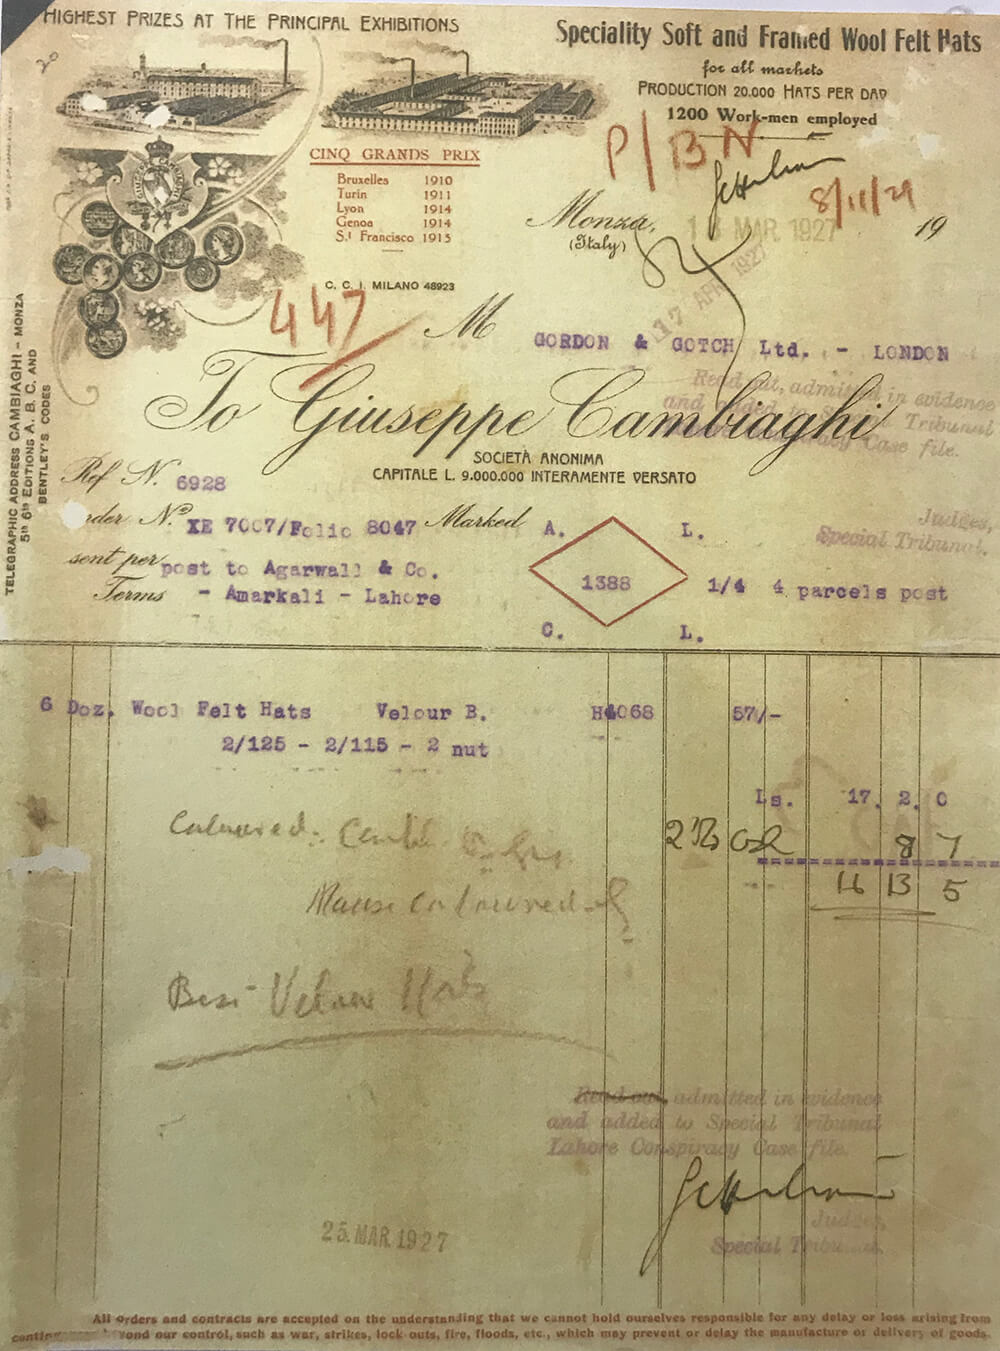 HIGHEST PRIZES AT THE PRINCIPAL EXHIBITIONS
Speciality Soft and Framed Wool Felt Hats
for all markets
PRODUCTION 20.000 HATS PER DAY
1200 Work-men employed
20
P/BN
8/11/29
CINQ GRANDS PRIX
Bruxelles 1910
Turin 1911
Lyon 1914
Genoa 1914
S.t Francisco 1915
C. C. I. MILANO 48923
Monza, 13 MAR 1927 19
(Italy)
17 APR 1927
447
M
GORDON & GOTCH Ltd. - LONDON
To Giuseppe Cambiaghi
SOCIETÀ ANONIMA
CAPITALE L. 9.000.000 INTERAMENTE VERSATO
Read out, admitted in evidence
and added to Special Tribunal
Conspiracy Case file.
Judges,
Special Tribunal.
TELEGRAPHIC ADDRESS CAMBIAGHI - MONZA
5th 6th EDITIONS A. B. C. AND
BENTLEY'S CODES
Ref N. 6928
rder N.o XE 7007/Folio 8047 Marked A. L.
sent per post to Agarwall & Co.
1388 1/4 4 parcels post
Terms - Amarkali - Lahore
C. L.
6 Doz. Wool Felt Hats Velour B. H4068 57/-
2/125 - 2/115 - 2 nut
Ls. 17. 2. 0
8 7
16 13 5
Coloured:
Mause coloured
Best Velour Hats
Read out, admitted in evidence
and added to Special Tribunal
Lahore Conspiracy Case file.
Judges,
Special Tribunal.
25. MAR. 1927
All orders and contracts are accepted on the understanding that we cannot hold ourselves responsible for any delay or loss arising from
beyond our control, such as war, strikes, lock outs, fire, floods, etc., which may prevent or delay the manufacture or delivery of goods.